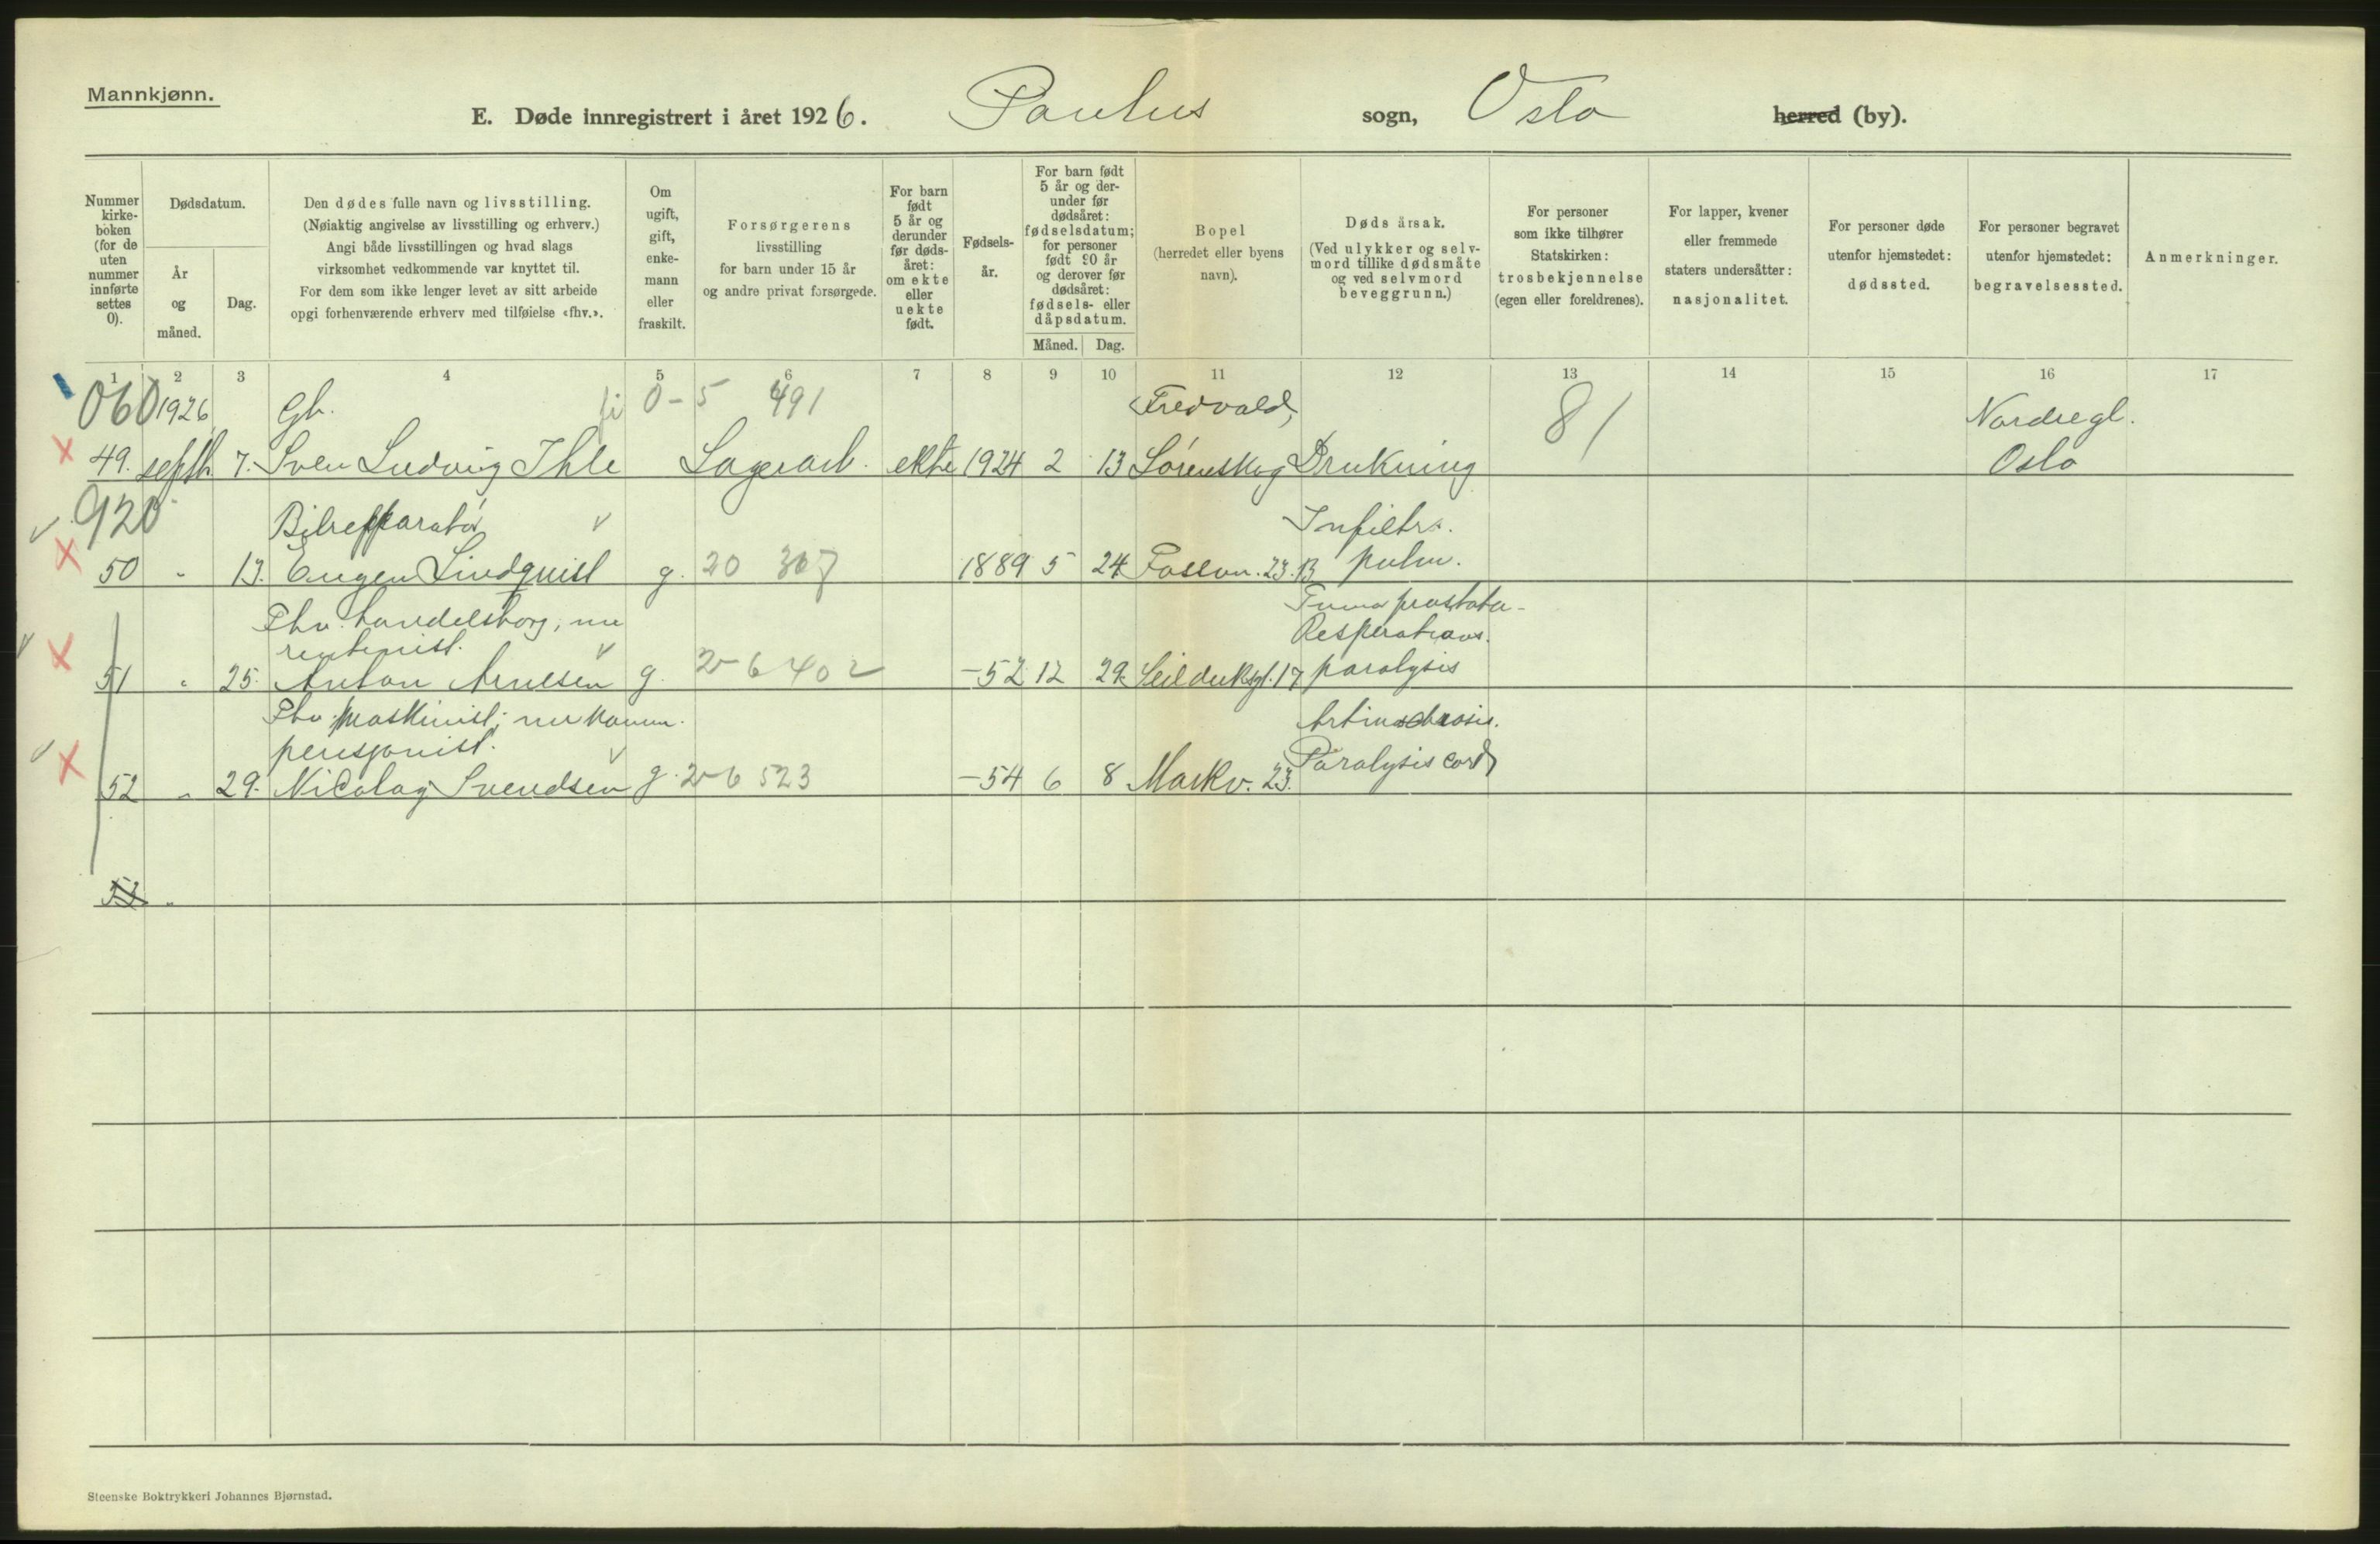 Mannkjønn.
E. Døde innregistrert i året 1926. Paulus sogn, Oslo herred (by).
Nummer kirke-boken (for de uten nummer innførte settes 0).
Dødsdatum.
År og måned.
Dag.
Den dødes fulle navn og livsstilling.
(Nøiaktig angivelse av livsstilling og erhverv.)
Angi både livsstillingen og hvad slags
virksomhet vedkommende var knyttet til.
For dem som ikke lenger levet av sitt arbeide
opgi forhenværende erhverv med tilføielse «fhv.».
Om ugift, gift, enke-mann eller fraskilt.
Forsørgerens
livsstilling
for barn under 15 år
og andre privat forsørgede.
For barn født 5 år og derunder før døds-året: om ekte eller uekte født.
Fødsels-år.
For barn født 5 år og der-under før dødsåret: fødselsdatum; for personer født 90 år og derover før dødsåret: fødsels- eller dåpsdatum.
Måned. Dag.
Bopel
(herredet eller byens navn).
Døds årsak.
(Ved ulykker og selv-mord tillike dødsmåte og ved selvmord beveggrunn.)
For personer som ikke tilhører Statskirken: trosbekjennelse (egen eller foreldrenes).
For lapper, kvener eller fremmede staters undersåtter: nasjonalitet.
For personer døde utenfor hjemstedet: dødssted.
For personer begravet utenfor hjemstedet: begravelsessted.
Anmerkninger.
1 2 3 4 5 6 7 8 9 10 11 12 13 14 15 16 17
060 1926 Gb. 0-5 491 Fredvald, 81 Nordregl.
49. septb. 7. Sven Ludvig Ihle Lagerarb. ekte 1924 2 13 Lørenskog Drukning Oslo
920 Bilreparatør Infiltr.
50 " 13. Eugen Lindquist g. 20 307 1889 5 24 Fossvn. 23 B pulm.
Fhv. handelsborg, nu Tumor prostata -
rentenist. Respirations.
51 " 25. Anton Arnesen g. 2-6 402 -52 12 29. Seilduksgt. 17 paralysis
Fhv. maskinist; nu komm.
pensjonist. Paralysis cord
52 " 29. Nicolay Svendsen g. 2-6 523 -54 6 8 Markv. 23.
53 "
Steenske Boktrykkeri Johannes Bjørnstad.